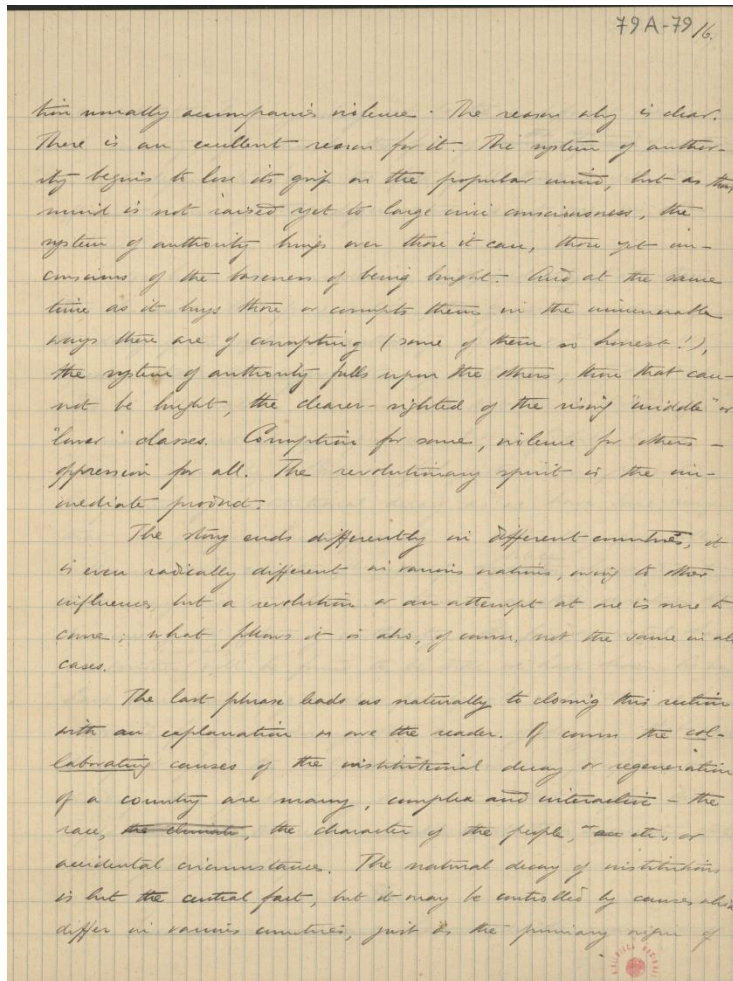 79A-79 /6.
tion usually accompanies violence. The reason why is clear.
There is an excellent reason for it. The system of author-
ity begins to lose its grip on the popular mind, but as that
mind is not raised yet to large civic consciousness, the
system of authority buys over those it can, those yet un-
conscious of the baseness of being bought. And at the same
time as it buys those or corrupts them in the innumerable
ways there are of corrupting (some of them so honest!),
the system of authority falls upon the others, those that can-
not be bought, the clearer-sighted of the rising "middle" or
"lower" classes. Corruption for some, violence for others —
oppression for all. The revolutionary spirit is the im-
mediate product.
The story ends differently in different countries, it
is even radically different in various nations, owing to other
influences, but a revolution or an attempt at one is sure to
come; what follows it is also, of course, not the same in all
cases.
The last phrase leads us naturally to closing this section
with an explanation we owe the reader. Of course the col-
laborating causes of the institutional decay or regeneration
of a country are many, complex and interactive — the
race, the climate, the character of the people, etc., or
accidental circumstance. The natural decay of institutions
is but the central fact, but it may be controlled by causes which
differ in various countries, just as the primary origin of